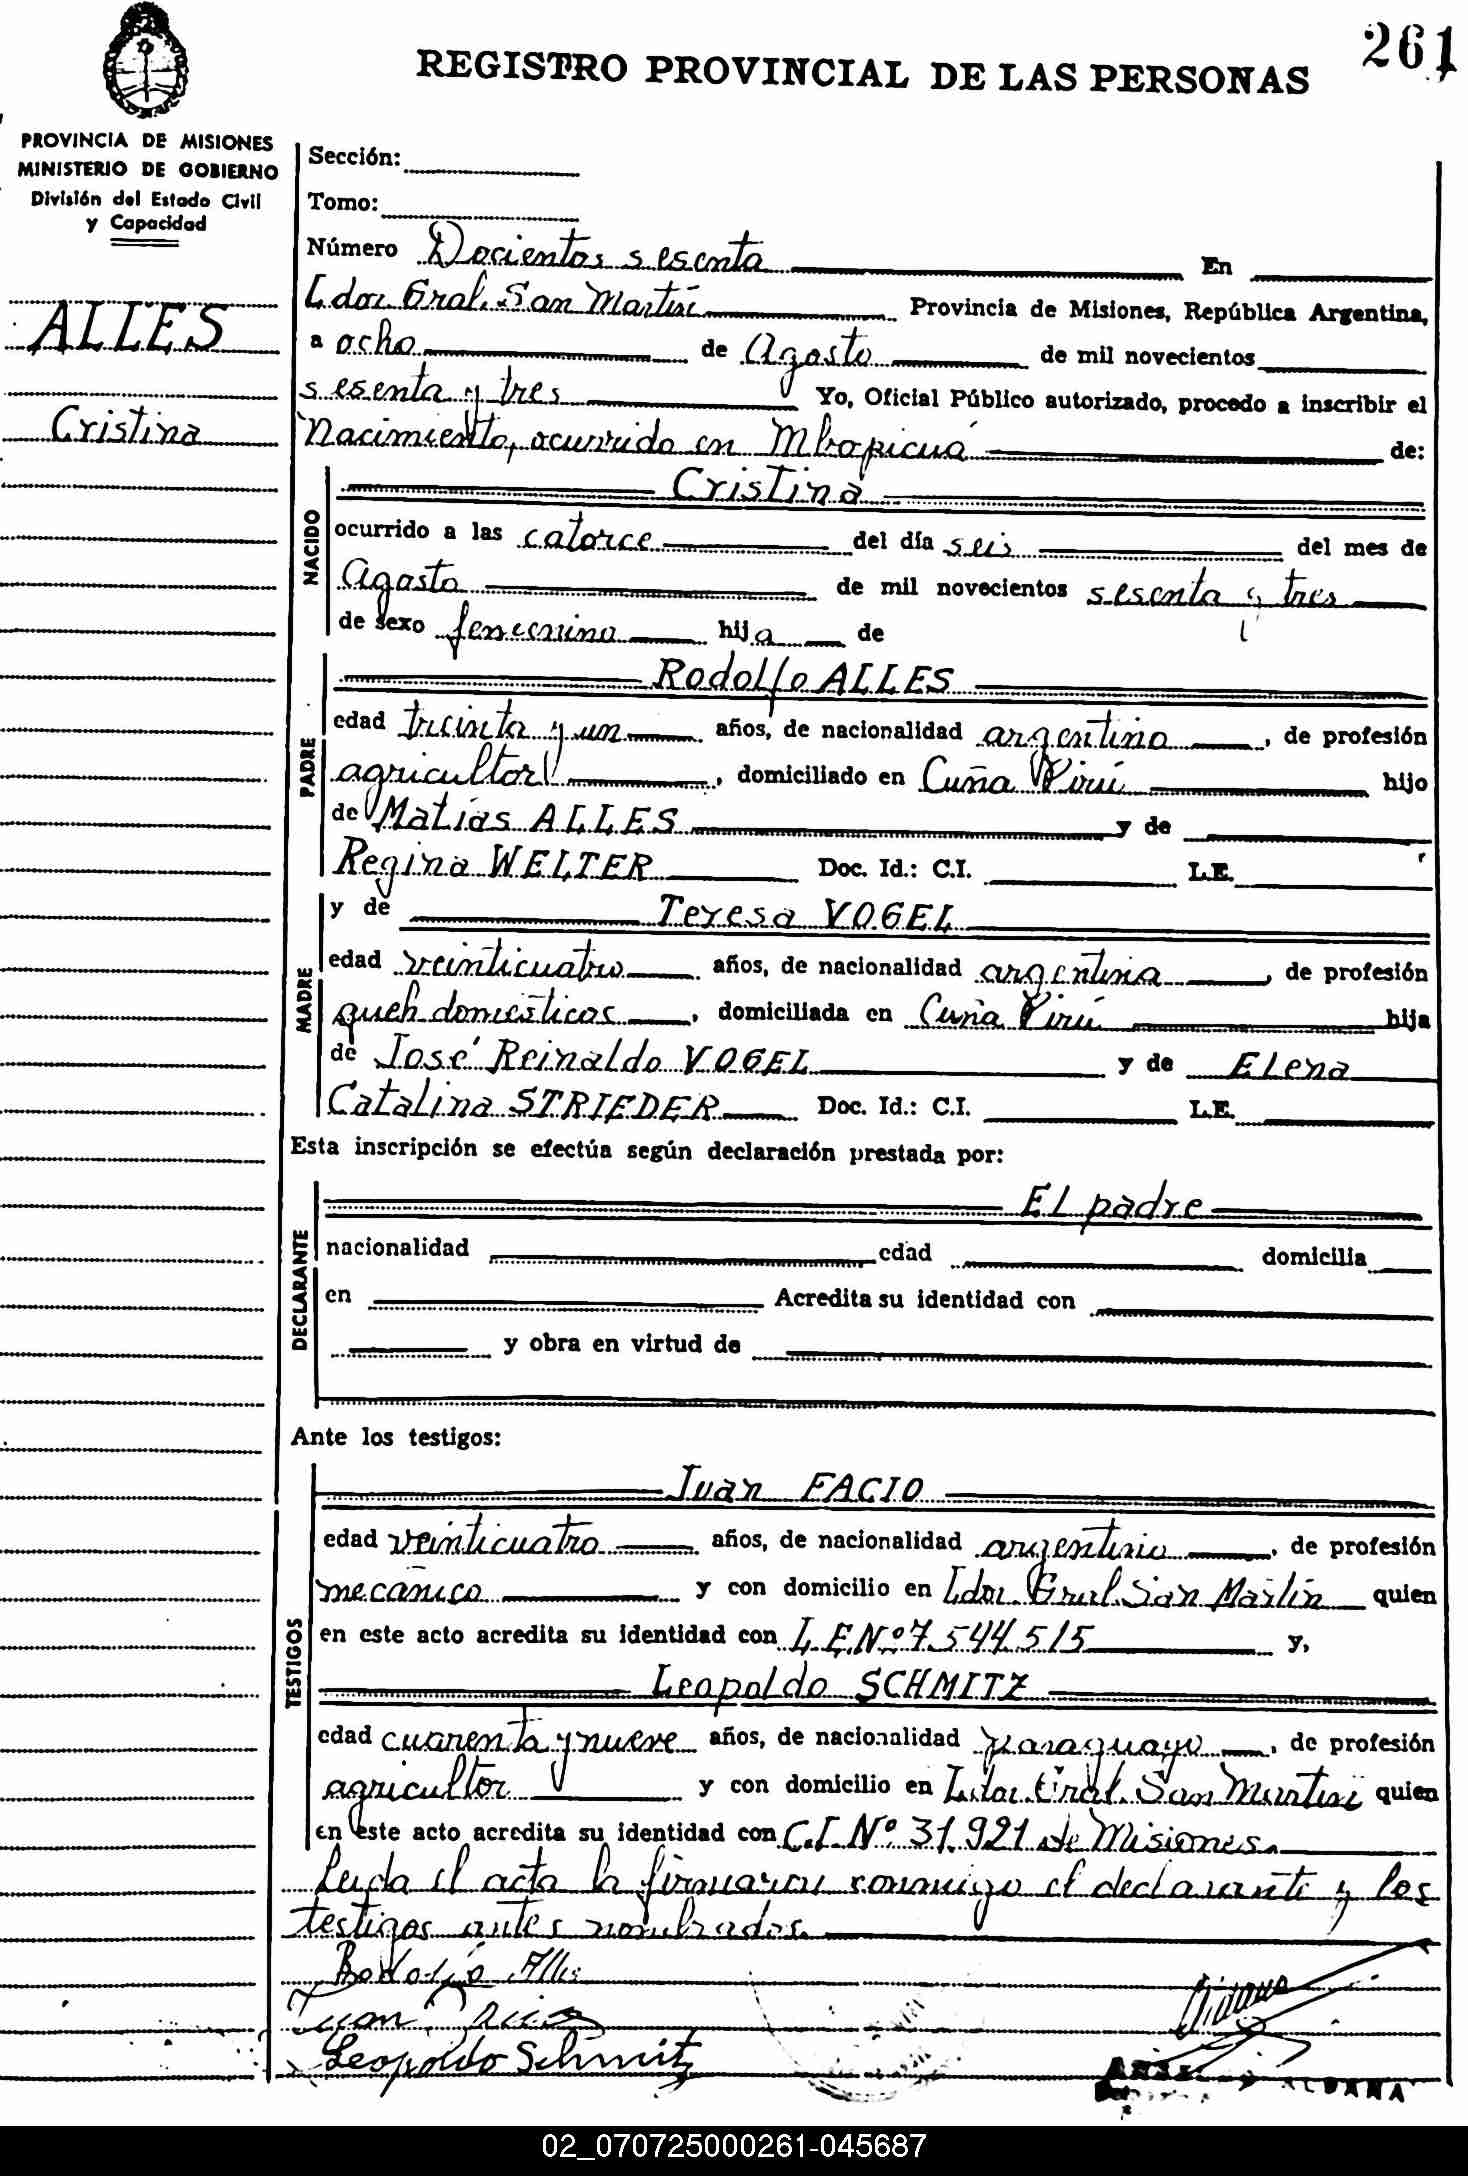 261
REGISTRO PROVINCIAL DE LAS PERSONAS
PROVINCIA DE MISIONES
MINISTERIO DE GOBIERNO
División del Estado Civil
y Capacidad
ALLES
Cristina
Sección:
Tomo:
Número Docientos sesenta En
Ldor Gral. San Martín Provincia de Misiones, República Argentina,
a ocho de Agosto de mil novecientos
sesenta y tres Yo, Oficial Público autorizado, procedo a inscribir el
Nacimiento, ocurrido en Mbopicuá de:
NACIDO
Cristina
ocurrido a las catorce del día seis del mes de
Agosto de mil novecientos sesenta y tres
de sexo femenino hija de
PADRE
Rodolfo ALLES
edad treinta y un años, de nacionalidad argentino, de profesión
agricultor, domiciliado en Cuña Pirú hijo
de Matías ALLES y de
Regina WELTER Doc. Id.: C.I. L.E.
MADRE
y de Teresa VOGEL
edad veinticuatro años, de nacionalidad argentina, de profesión
queh. domésticos, domiciliada en Cuña Pirú hija
de José Reinaldo VOGEL y de Elena
Catalina STRIEDER Doc. Id.: C.I. L.E.
Esta inscripción se efectúa según declaración prestada por:
DECLARANTE
El padre
nacionalidad edad domicilia
en Acredita su identidad con
y obra en virtud de
Ante los testigos:
TESTIGOS
Juan FACIO
edad veinticuatro años, de nacionalidad argentino, de profesión
mecánico y con domicilio en Ldor. Gral. San Martín quien
en este acto acredita su identidad con L.E.Nº 7.544.515 y,
Leopoldo SCHMITZ
edad cuarenta y nueve años, de nacionalidad paraguayo, de profesión
agricultor y con domicilio en Ldor. Gral. San Martín quien
en este acto acredita su identidad con C.I. Nº 31.921 de Misiones.
Leyda el acta la firmaron conmigo el declarante y los
testigos antes nombrados.
Rodolfo Alles
Juan Facio
Leopoldo Schmitz
02_070725000261-045687